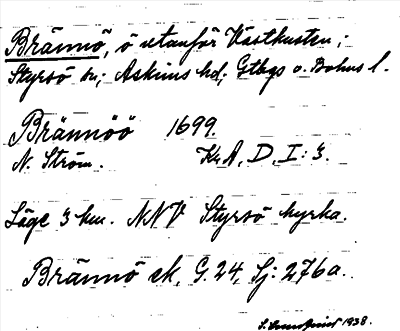 Brännö, ö utanför Västkusten;
Styrsö sn; Askims hd; Gtbgs o. Bohus l.
Brännöö 1699.
N. Ström. Kr.A, D, I: 3.
Läge 3 km. NNV Styrsö kyrka.
Brännö ek, G. 24, Sj: 276a.
1938.